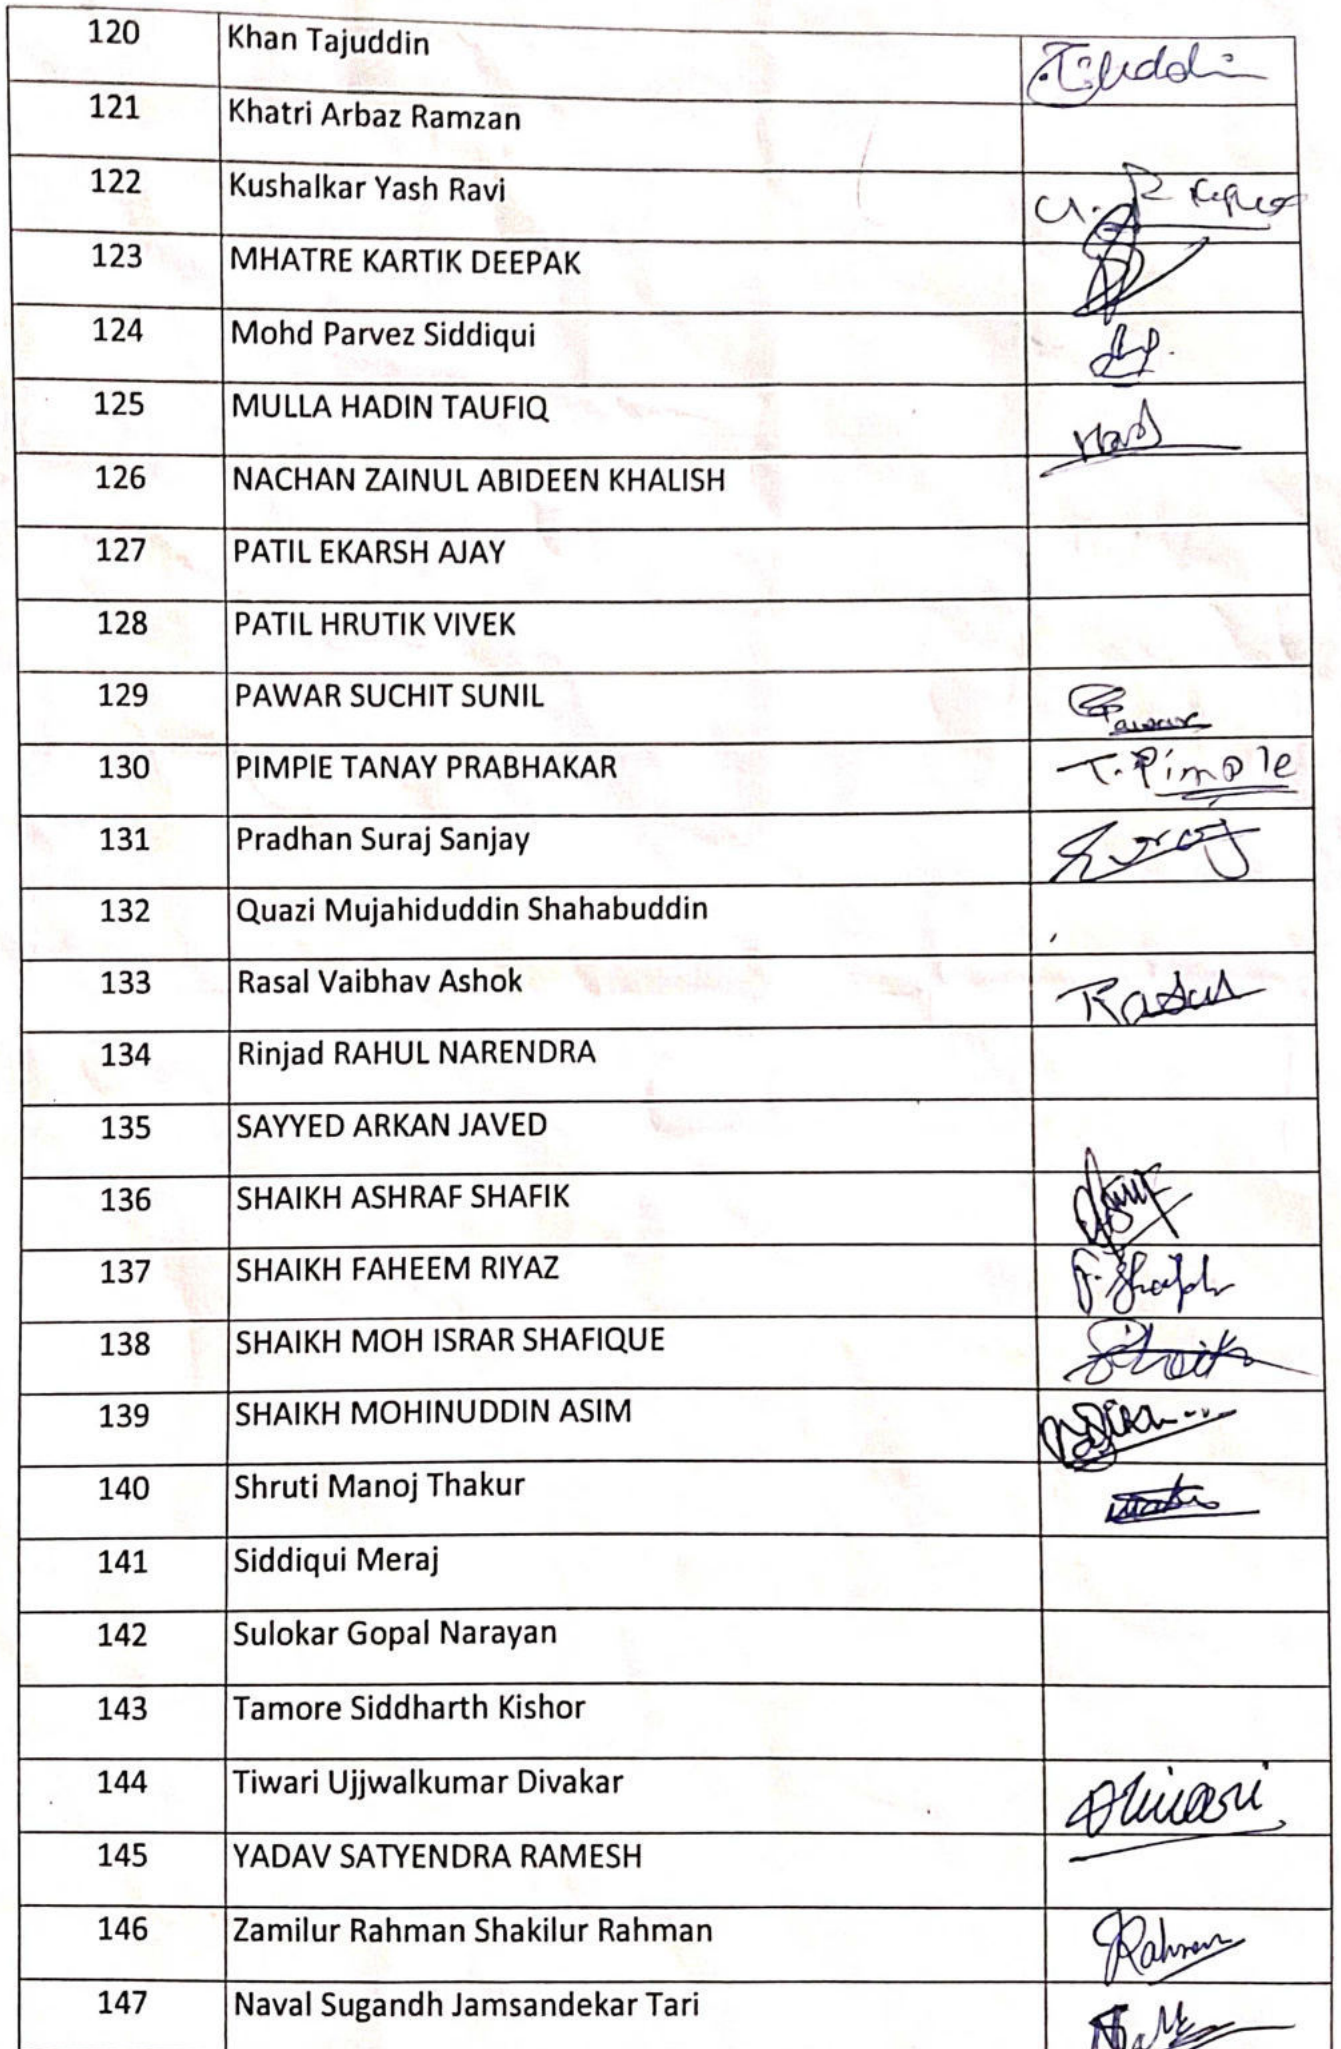 120 Khan Tajuddin
121 Khatri Arbaz Ramzan
122 Kushalkar Yash Ravi
123 MHATRE KARTIK DEEPAK
124 Mohd Parvez Siddiqui
125 MULLA HADIN TAUFIQ
126 NACHAN ZAINUL ABIDEEN KHALISH
127 PATIL EKARSH AJAY
128 PATIL HRUTIK VIVEK
129 PAWAR SUCHIT SUNIL Pawar
130 PIMPlE TANAY PRABHAKAR T. Pimple
131 Pradhan Suraj Sanjay Suraj
132 Quazi Mujahiduddin Shahabuddin
133 Rasal Vaibhav Ashok Rasal
134 Rinjad RAHUL NARENDRA
135 SAYYED ARKAN JAVED
136 SHAIKH ASHRAF SHAFIK
137 SHAIKH FAHEEM RIYAZ F. Shaikh
138 SHAIKH MOH ISRAR SHAFIQUE Shaikh
139 SHAIKH MOHINUDDIN ASIM
140 Shruti Manoj Thakur
141 Siddiqui Meraj
142 Sulokar Gopal Narayan
143 Tamore Siddharth Kishor
144 Tiwari Ujjwalkumar Divakar
145 YADAV SATYENDRA RAMESH
146 Zamilur Rahman Shakilur Rahman Rahman
147 Naval Sugandh Jamsandekar Tari